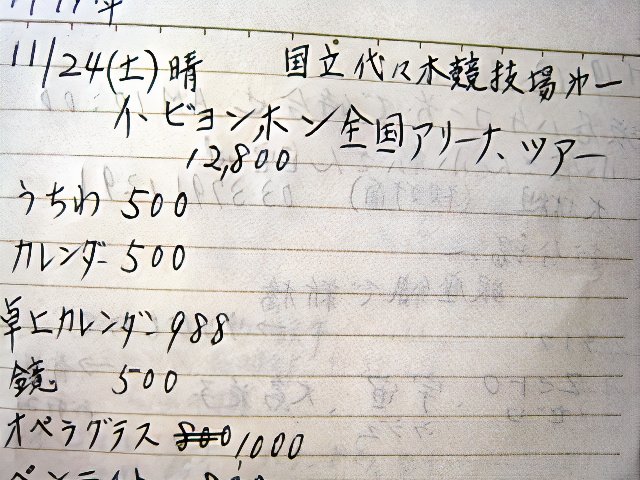 11/24(土)晴 国立代々木競技場㐧一
イ・ビョン,ホン全国アリーナ、ツアー
12,800
うちわ 500
カレンダー 500
卓上カレンダー 988
鏡 500
オペラグラス 800 1,000
ペンライト